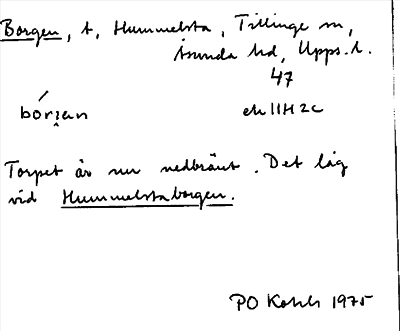 Borgen, t, Hummelsta, Tillinge sn,
Åsunda hd, Upps. l.
47
bórian
ek 11H 2c
Torpet är nu nedbränt. Det låg
vid Hummelstaborgen.
PO 1975